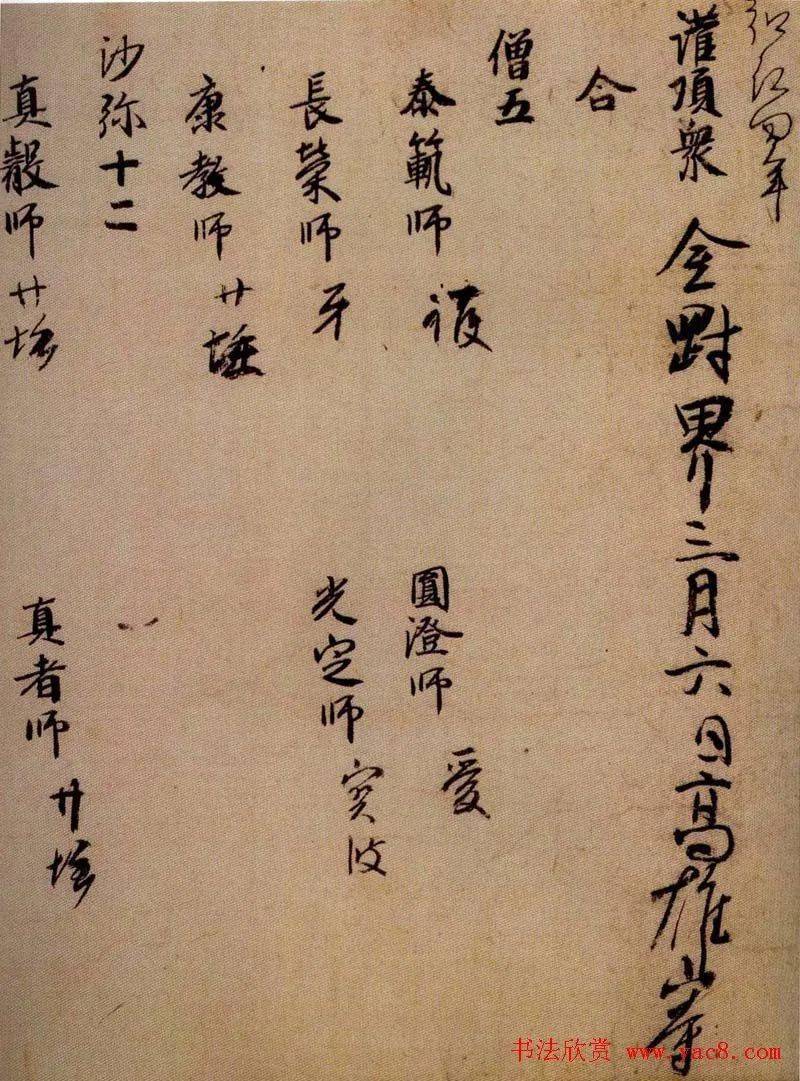 弘仁四年
灌頂衆 金剛界三月六日高雄山寺
合
僧五
泰範師 護 圓澄師 愛
長榮師 牙 光定師 寶波
康教師 艹埵
沙弥十二
真殼師 艹埵 真者師 艹埵
书法欣赏 www.yac8.com